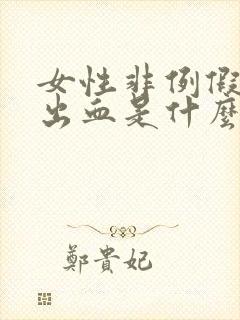 女性非例假
出血是什麼
鄭貴妃